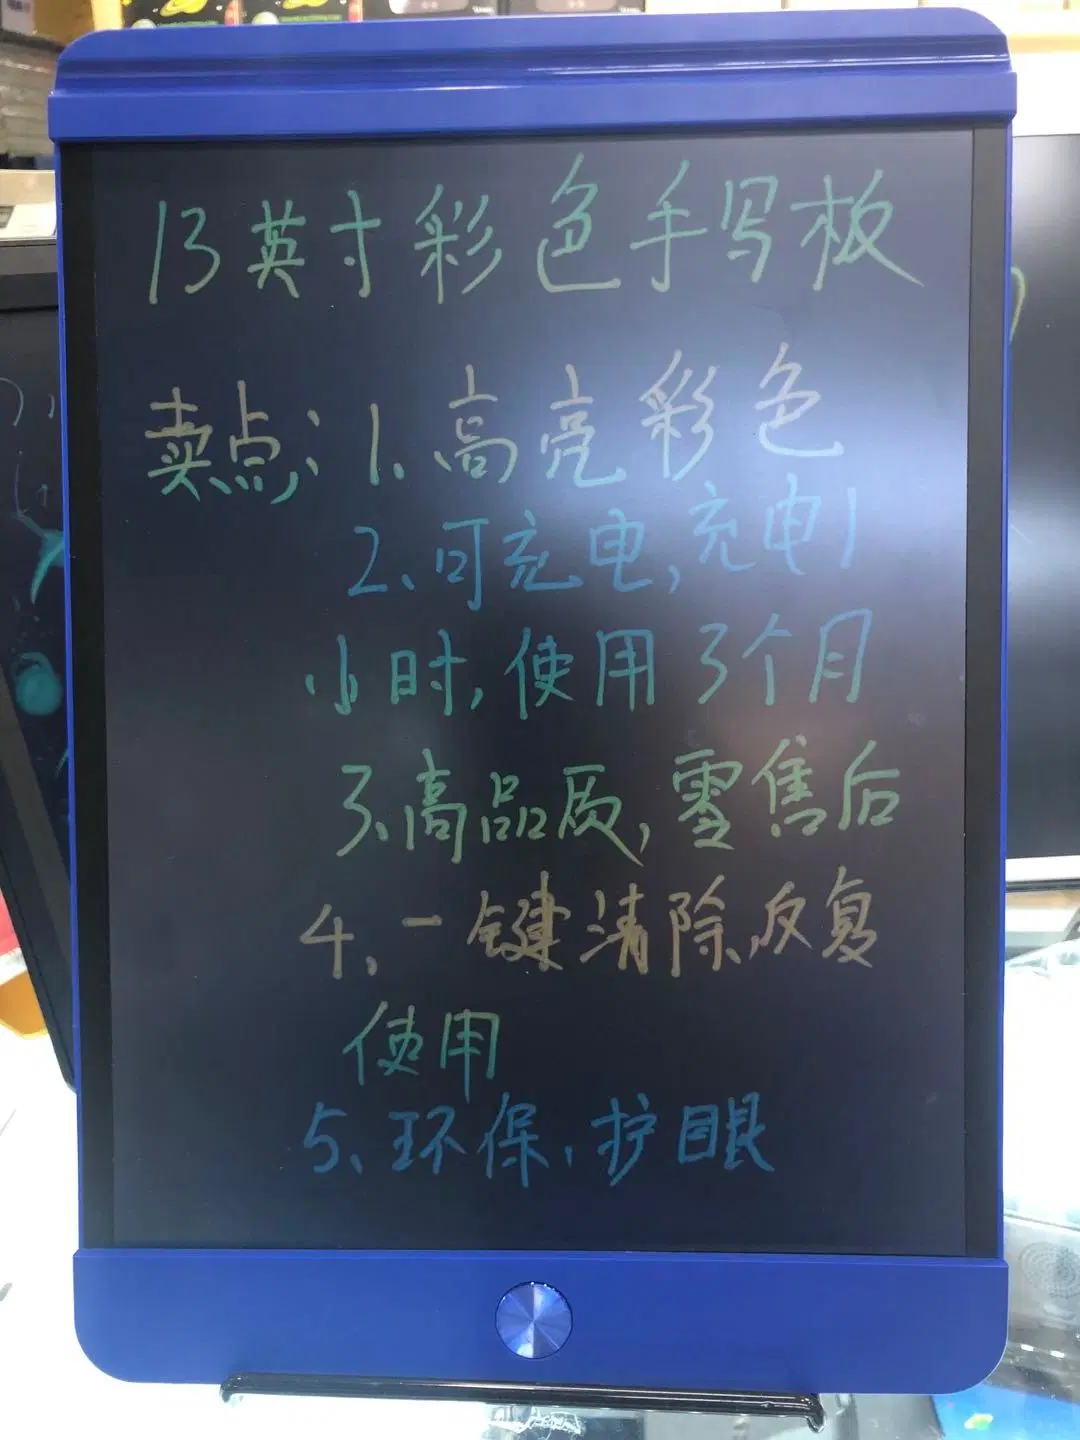 13英寸彩色手写板
卖点:1、高亮彩色
2、可充电,充电1
小时,使用3个月
3、高品质,零售后
4、一键清除,反复
使用
5、环保、护眼